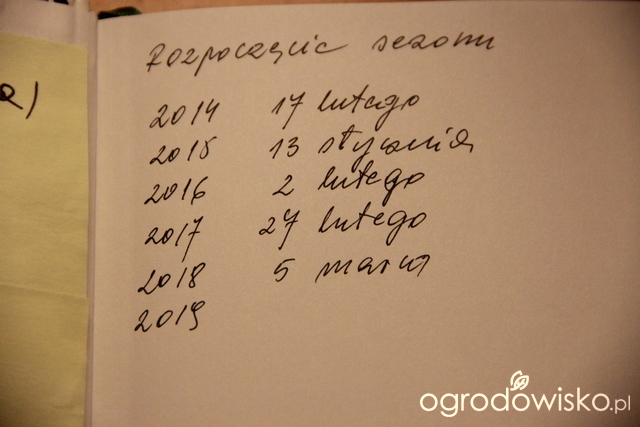 a)
Rozpoczęcie sezonu
2014 17 lutego
2015 13 stycznia
2016 2 lutego
2017 27 lutego
2018 5 marca
2019
ogrodowisko.pl